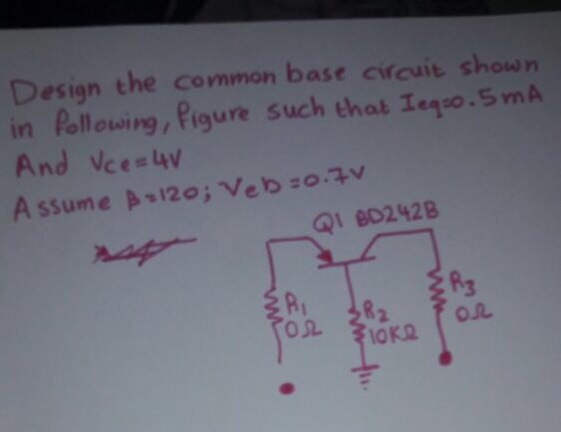 Design the common base circuit shown
in following, figure such that Ieq=0.5mA
And Vce=4V
Assume β=120; Veb=0.7V
Q1 BD242B
R1
0Ω
R2
10KΩ
R3
0Ω